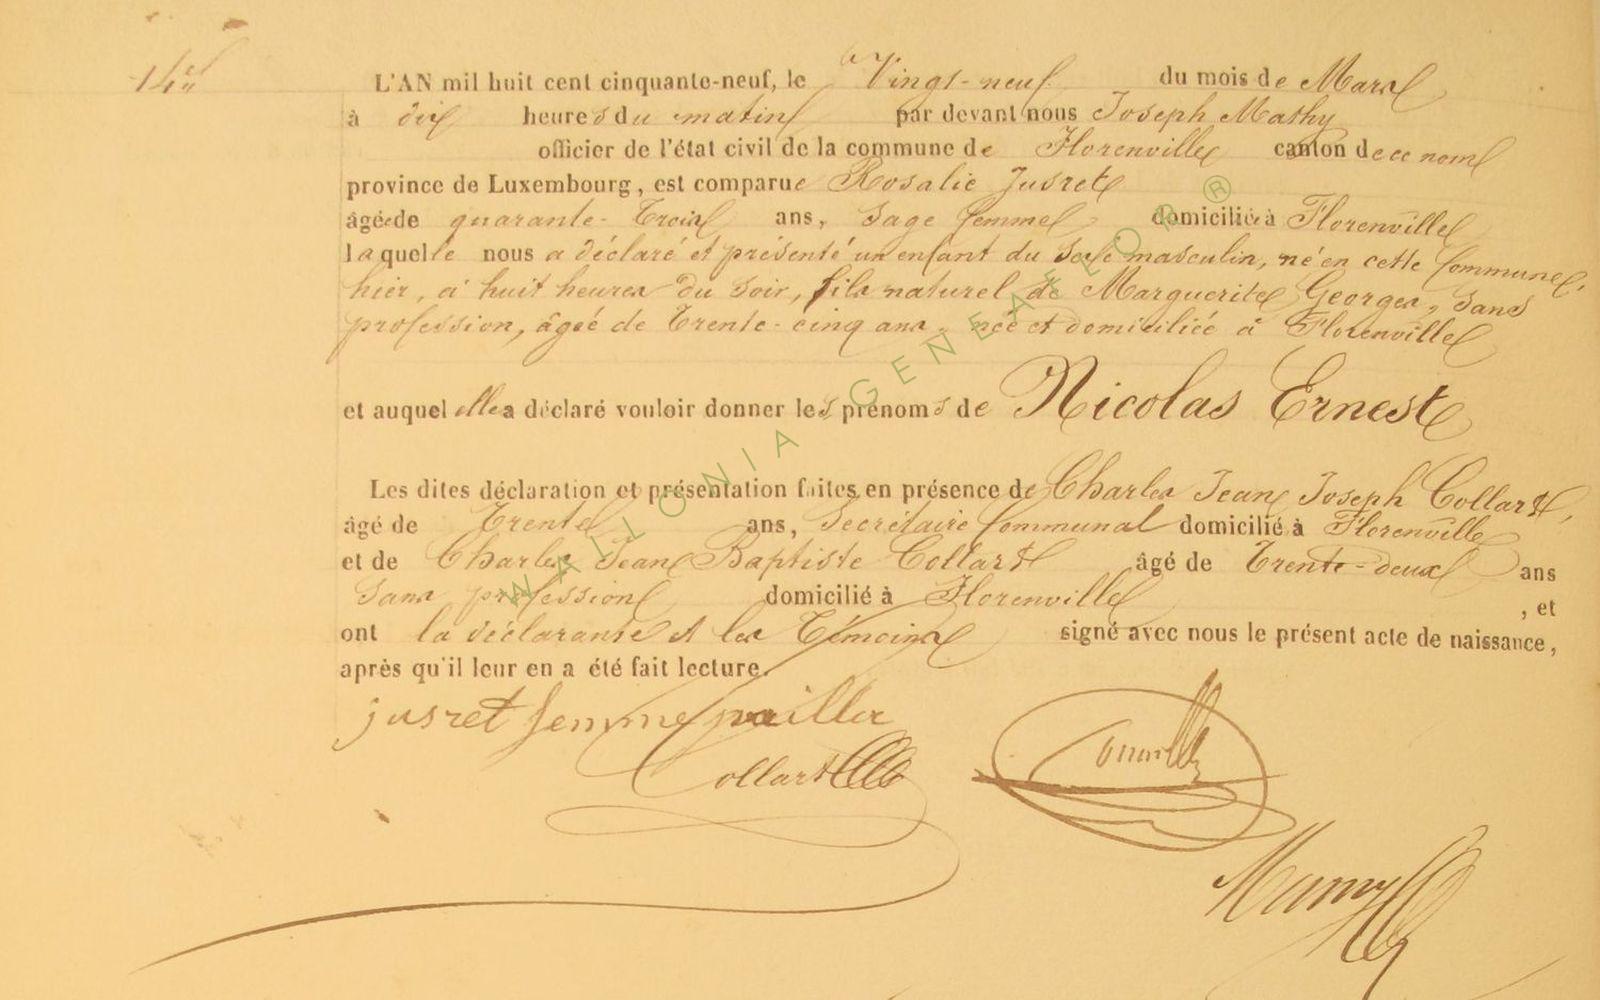 14e
L'AN mil huit cent cinquante-neuf, le Vingt-neuf du mois de Mars
à dix heures du matin par devant nous Joseph Mathy
officier de l'état civil de la commune de Florenville canton de ce nom
province de Luxembourg, est comparue Rosalie Jusret
âgée de quarante-Trois ans, Sage femme domiciliée à Florenville
laquelle nous a déclaré et présenté un enfant du Sexe masculin, né en cette Commune,
hier, à huit heures du Soir, fils naturel de Marguerite Georges, Sans
profession, âgée de Trente-cinq ans, née et domiciliée à Florenville
et auquel elle a déclaré vouloir donner les prénoms de Nicolas Ernest
Les dites déclaration et présentation faites en présence de Charles Jean Joseph Collart,
âgé de Trente ans, Secrétaire Communal domicilié à Florenville
et de Charles Jean Baptiste Collart âgé de Trente-deux ans
Sans profession domicilié à Florenville , et
ont la déclarante et les Témoins signé avec nous le présent acte de naissance,
après qu'il leur en a été fait lecture.
jusret femme
Collart
WALLONIA GENEALOR ®